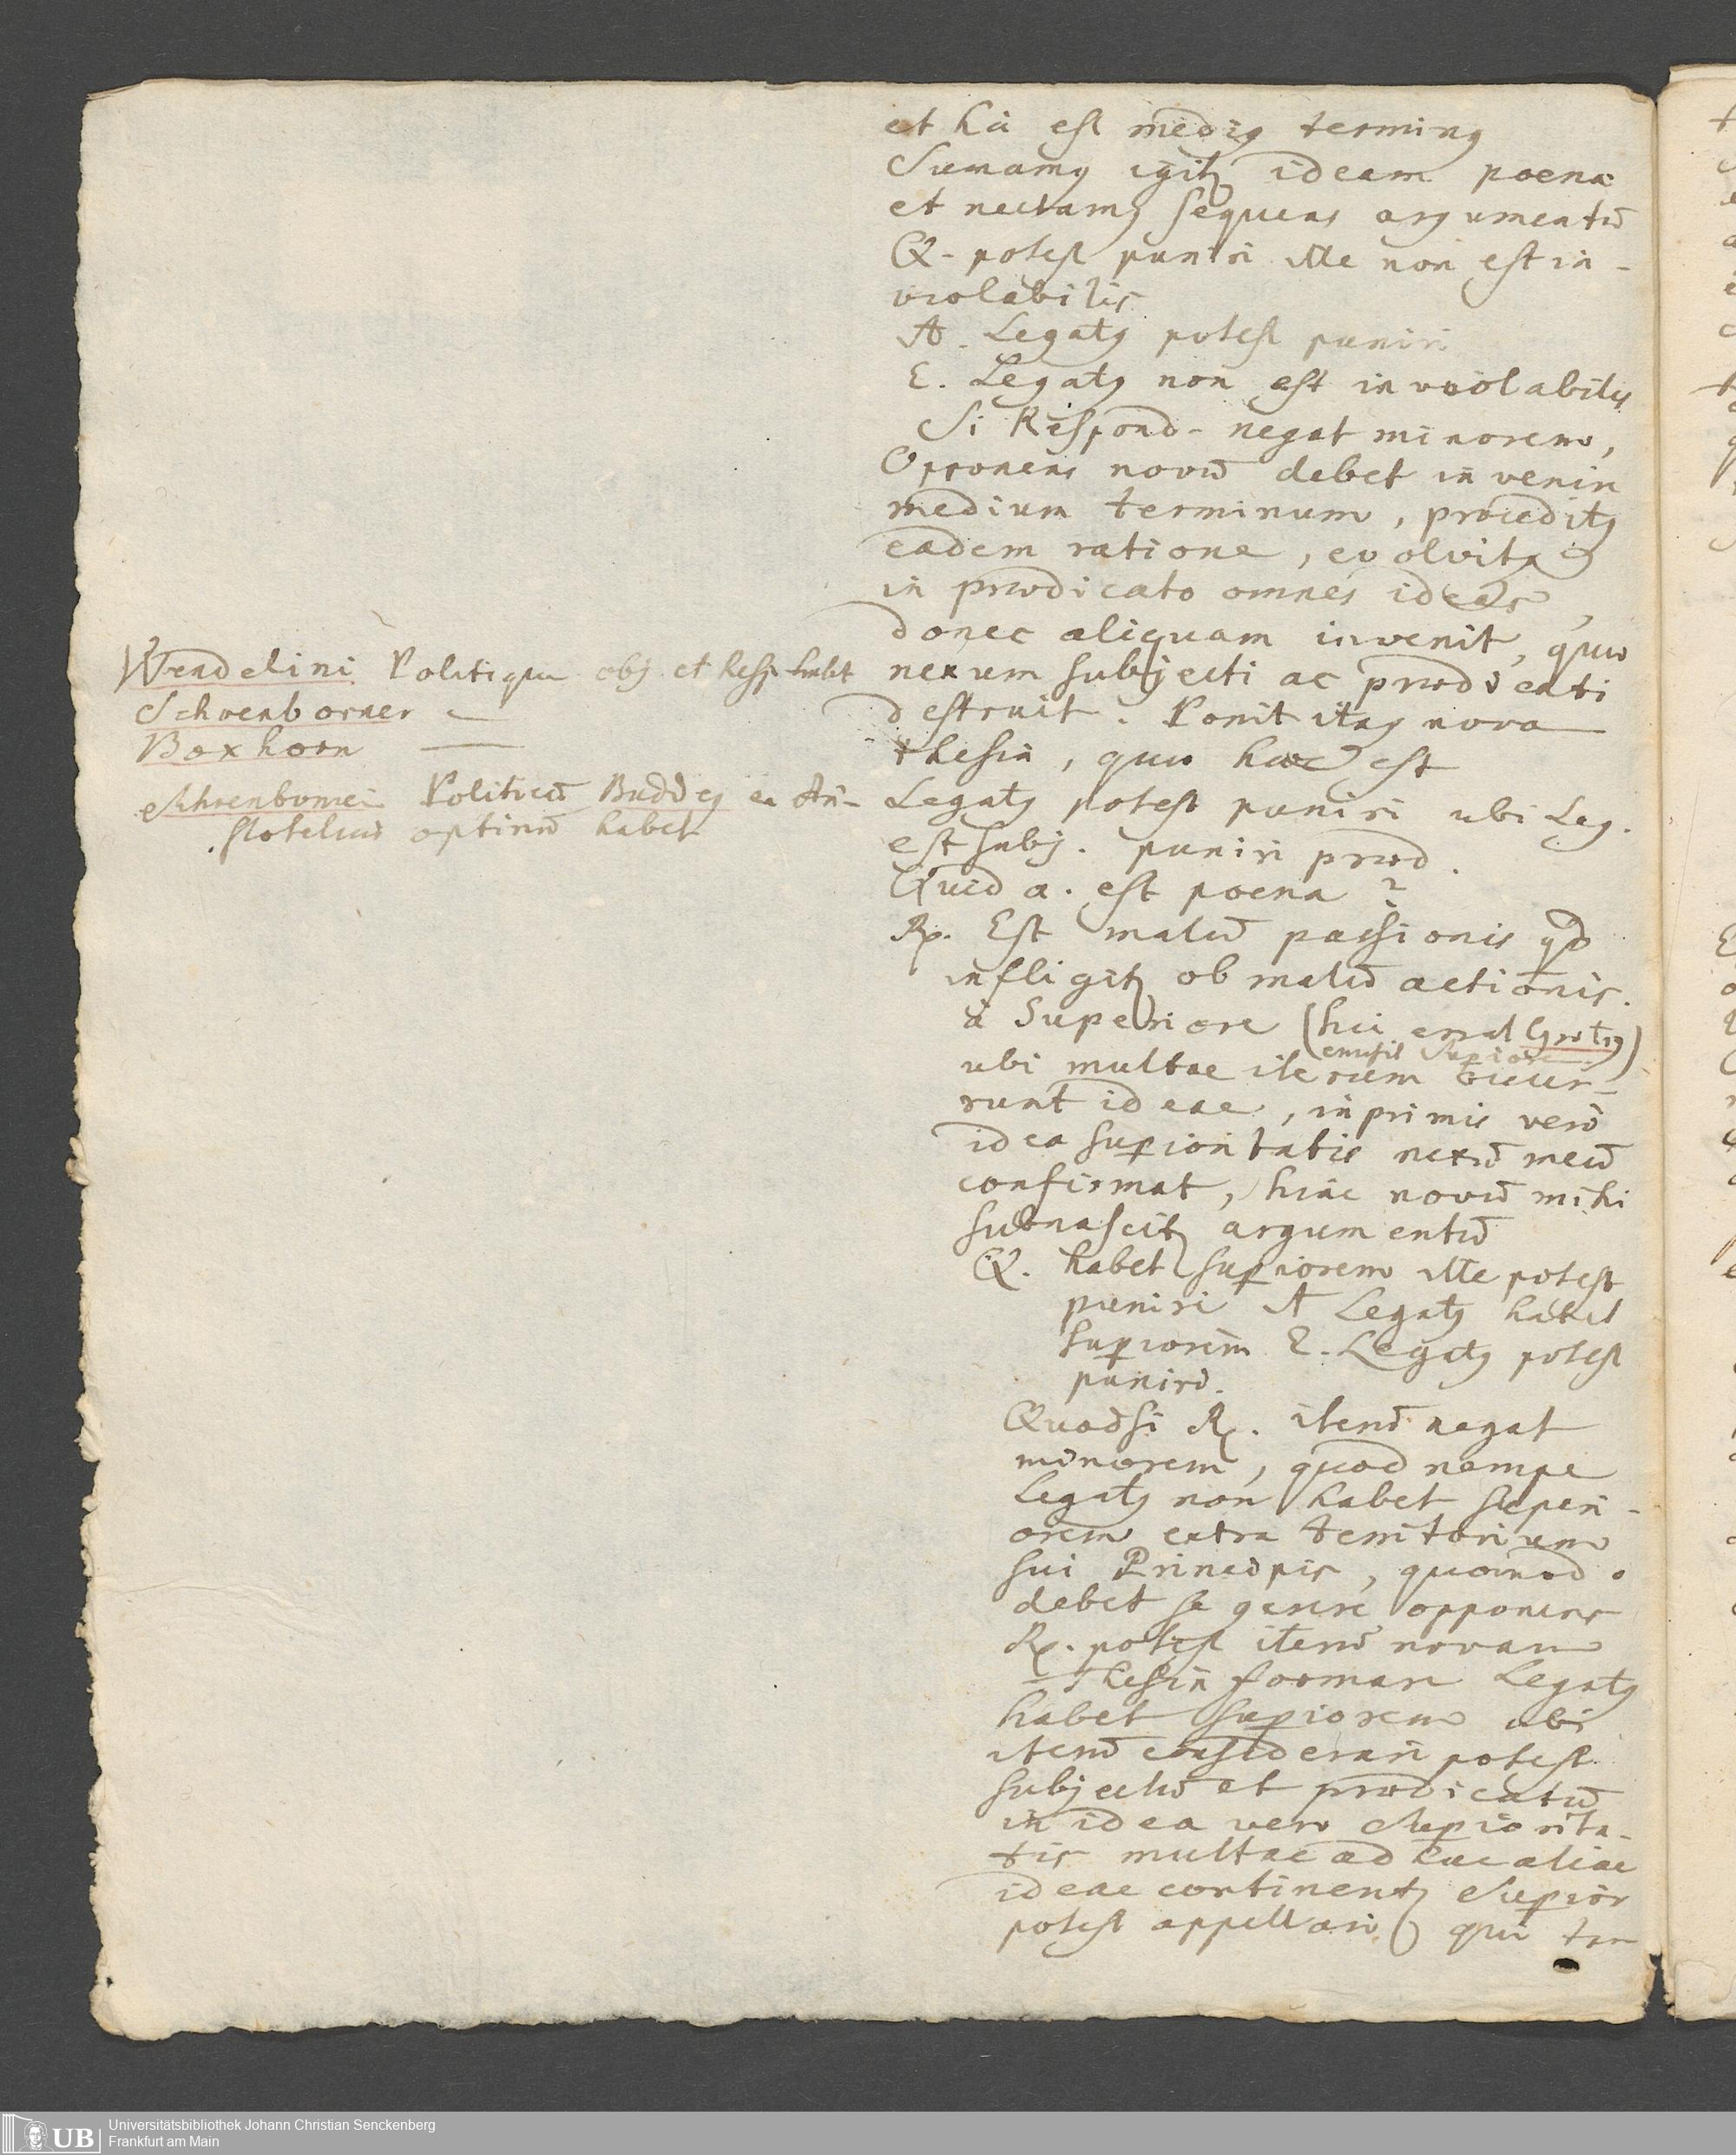 et hic est mediꝰ terminꝰ
Sumamꝰ igitꝛ ideam poenae
et nectamꝰ sequens argumentū
Q. potest puniri ille non est in-
violabilis
A. Legatꝰ potest puniri
E. Legatꝰ non est inviolabilis
Si Respond. negat minorem,
Opponens novū debet invenire
medium terminum, procedit
eadem ratione, evolvit
in praedicato omnes ideas,
donec aliquam invenit, quae
nexum subjecti ac praedicati
destruit. Ponit itaq nova
thesin, quae haec est
Legatꝰ potest puniri ubi Leg.
est subj. puniri praed.
Quid a. est poena?
Rp. Est malū passionis qd
infligitꝛ ob malū actionis.
à Superiore (hic errat Grotiꝰ)
ubi multae iterum occur-
runt ideae, inprimis verò
idea supioritatis nexū meū
confirmat, hinc novū mihi
subnascitꝛ argumentū
Q. habet supiorem ille potest
puniri A Legatꝰ habet
supiorem E. Legatꝰ potest
puniri.
Quodsi Rp. iterū negat
minorem, quod nempe
Legatꝰ non habet superi-
orem extra territorium
sui Principis, quomodo
debet se gerere opponens
Rp. potest iterū novam
thesin formare Legatꝰ
habet supiorem ubi
iterū considerari potest
subjectū et praedicatū
in idea vero Supiorita-
tis multae adhuc aliae
ideae continentꝛ Supior
potest appellari qui tam
Wendelini Politique obj et Resp. habet
Schoenborner —
Boxhorn —
Politicū Buddeꝰ ex Ari-
stotelicis optimū habet